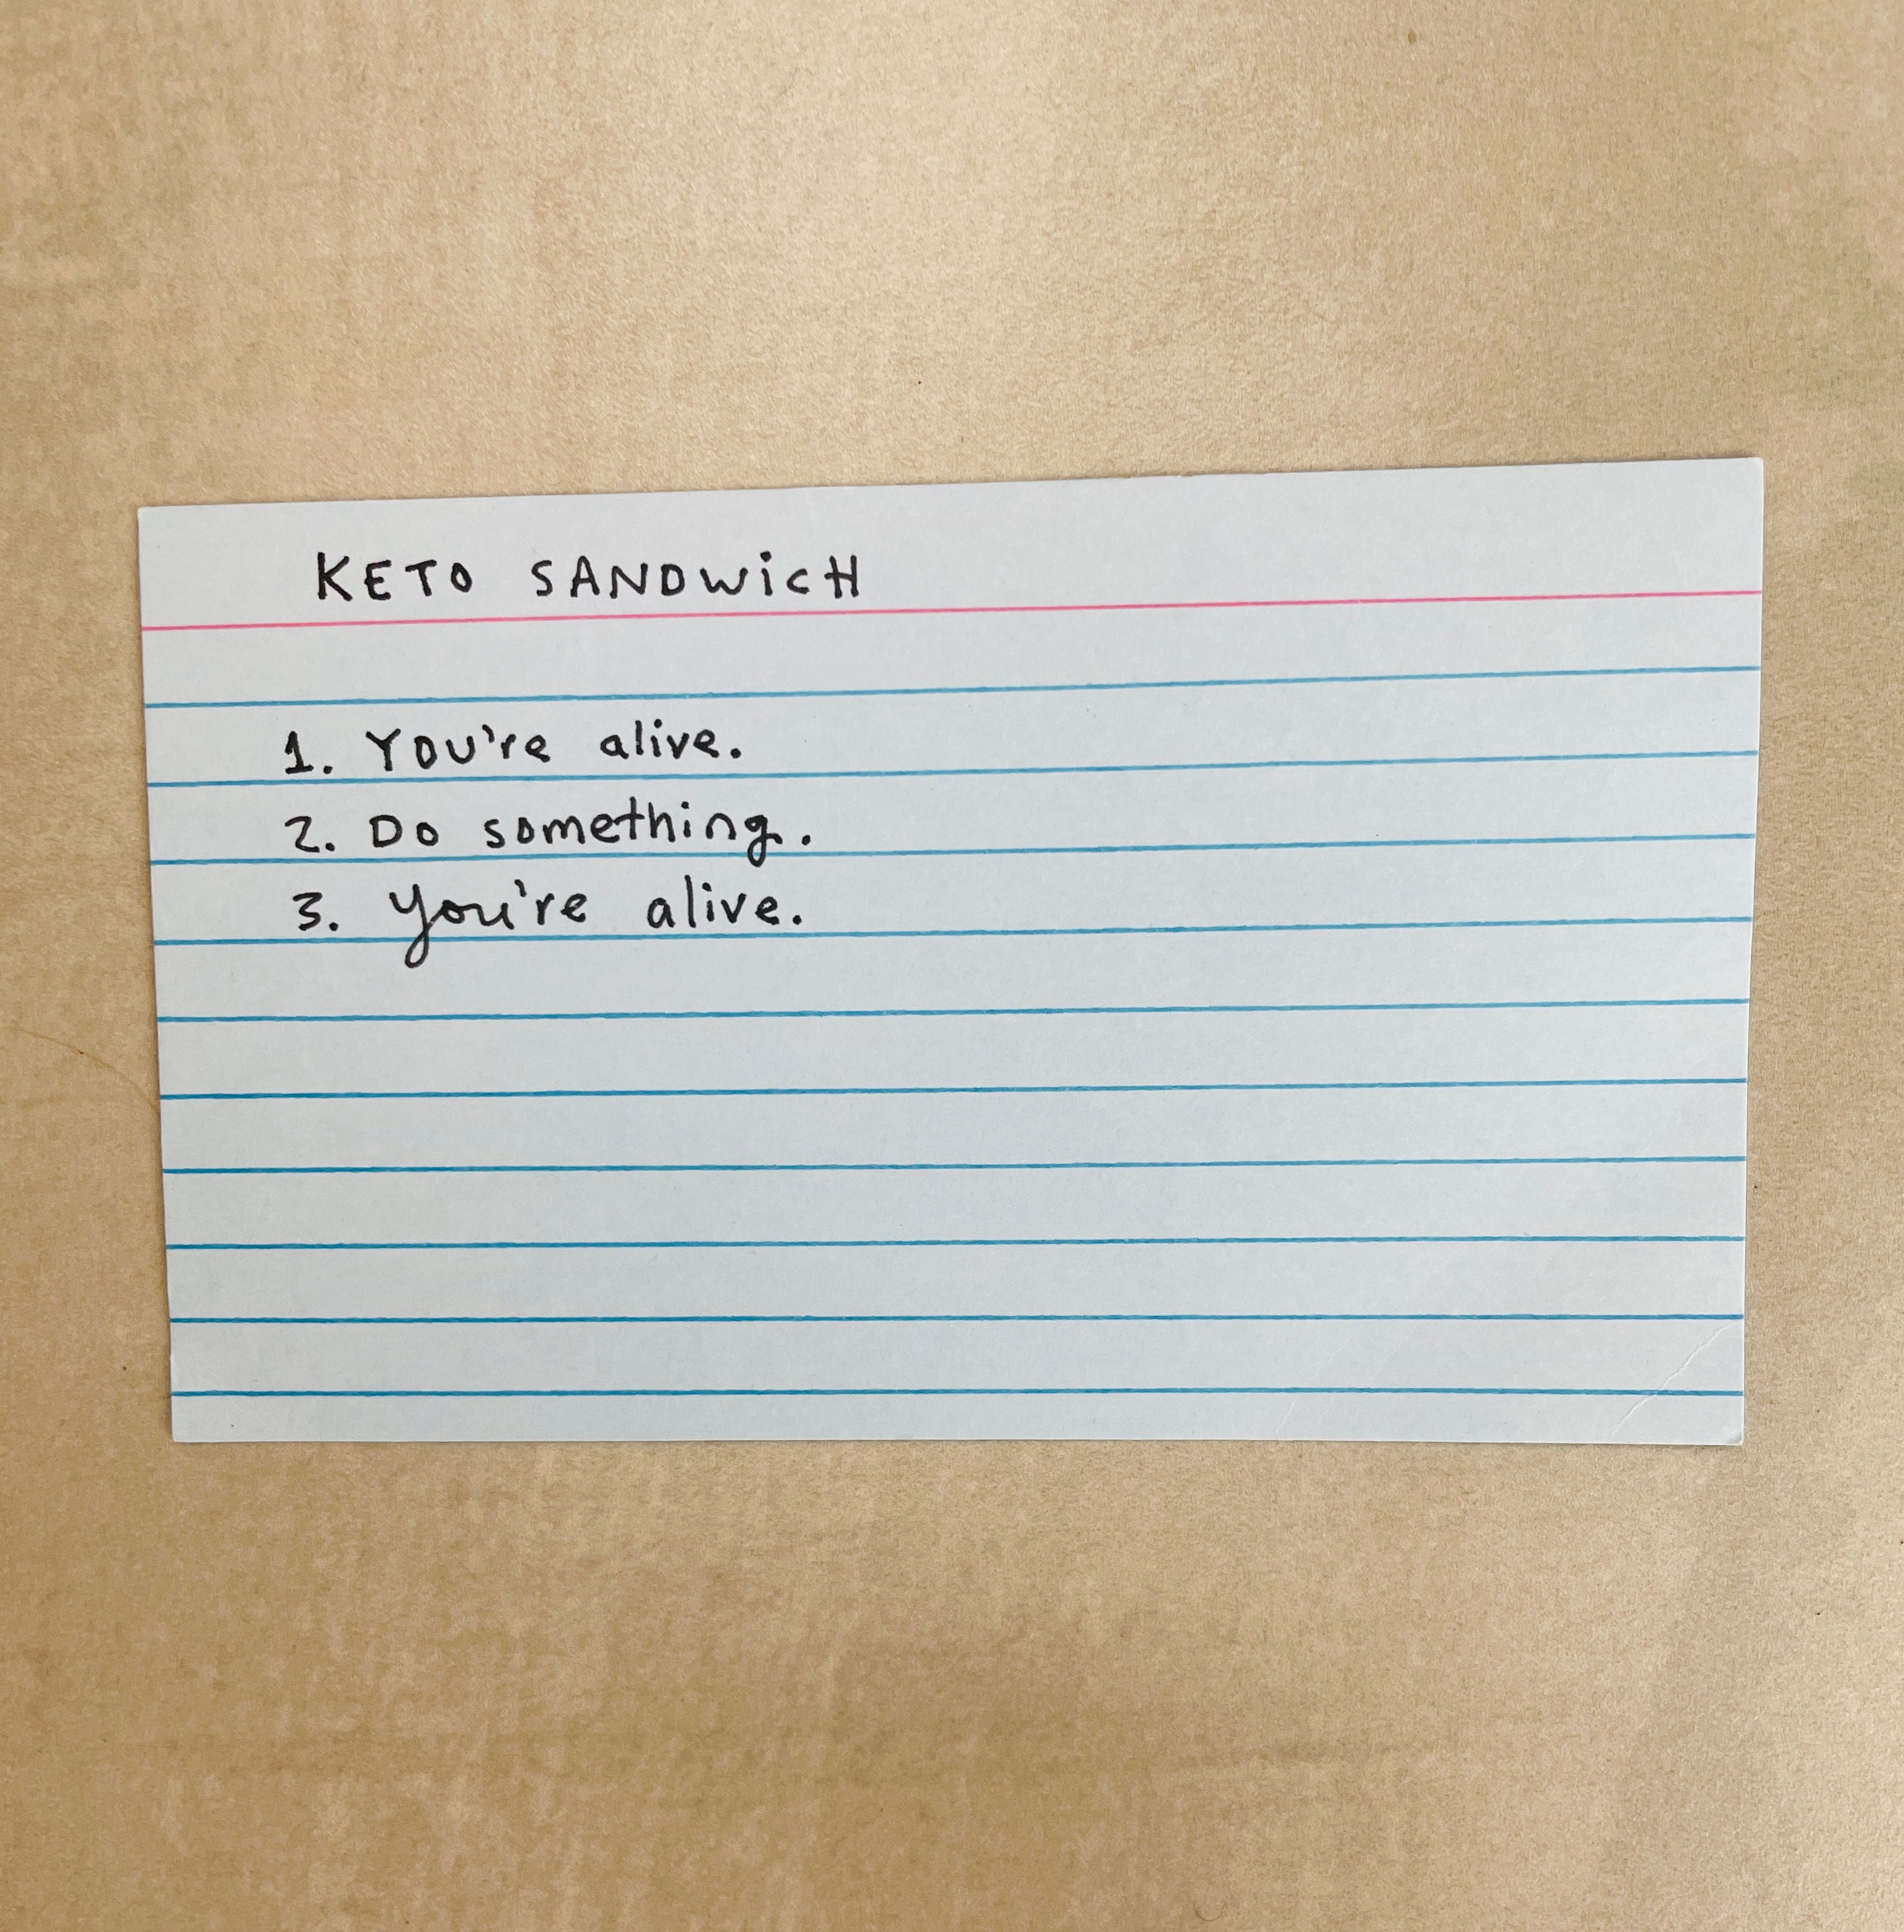 KETO SANDWiCH
1. YOU're alive.
2. Do something.
3. You're alive.